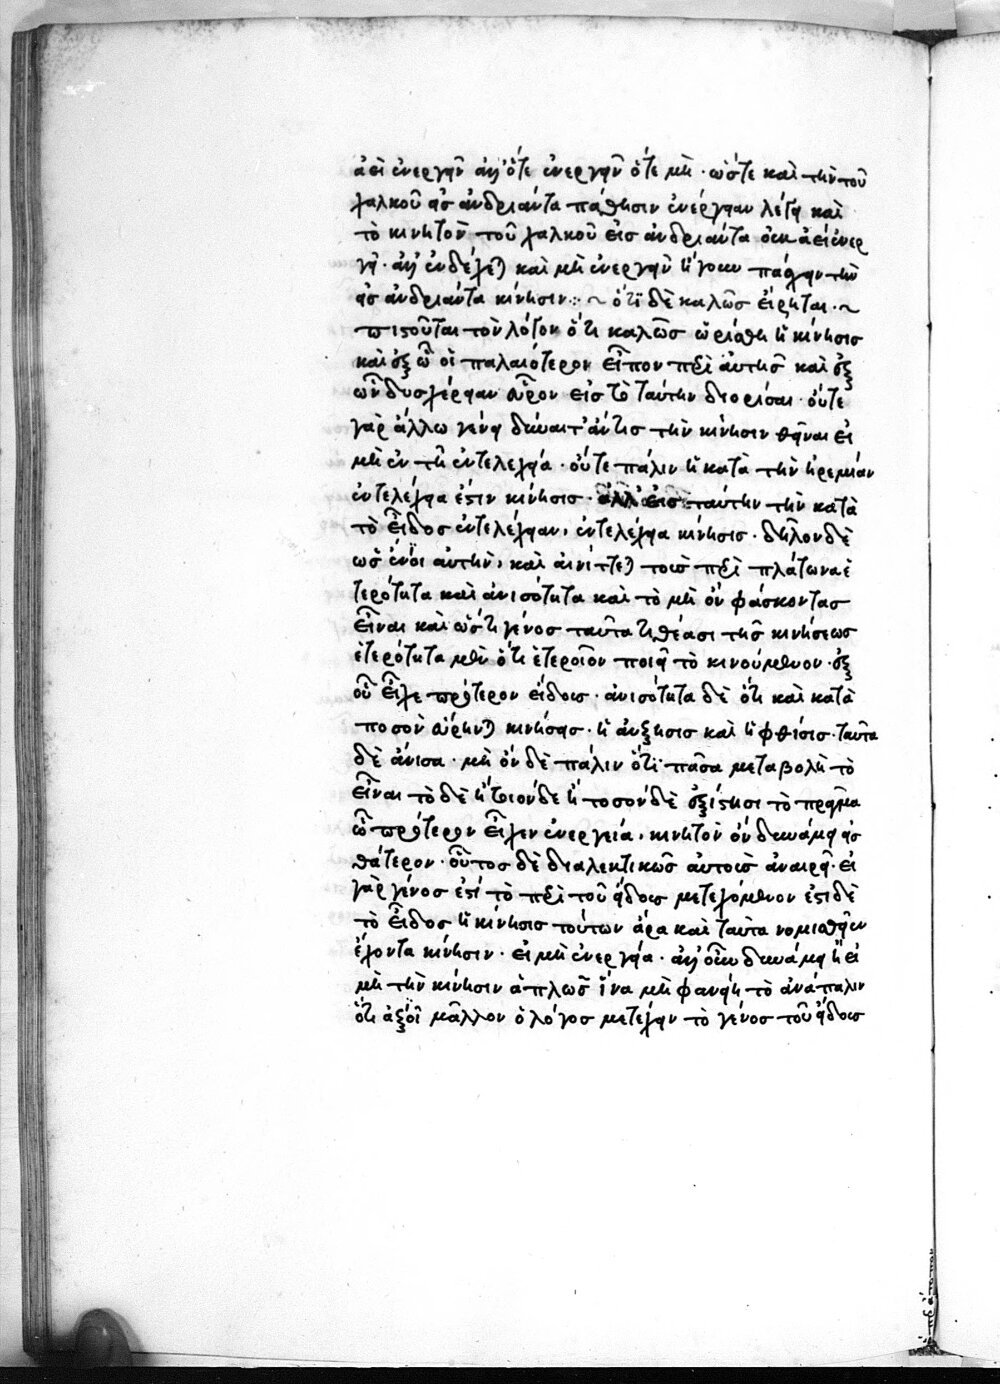 ἀεὶ ἐνεργεῖν ἀλλ' ὅτε ἐνεργεῖν ὅτε μὴ · ὥστε καὶ τὴν τοῦ
χαλκοῦ εἰς ἀνδριάντα πάθησιν ἐνέργειαν λέγει καὶ
τὸ κινητὸν τοῦ χαλκοῦ εἰς ἀνδριάντα οὐκ ἀεὶ ἐνερ
γεῖ · ἀλλ' ἐνδέχεται καὶ μὴ ἐνεργεῖν ἤγουν πάσχειν τὴν
εἰς ἀνδριάντα κίνησιν : ~ ὅτι δὲ καλῶς εἴρηται · ~
πιστοῦται τὸν λόγον ὅτι καλῶς ὡρίσθη ἡ κίνησις
καὶ ἐξ ὧν οἱ παλαιότερον εἶπον περὶ αὐτῆς καὶ ἐξ
ὧν δυσχέρειαν εὗρον εἰς τὸ ταύτην διορίσαι · οὔτε
γὰρ ἄλλω γένει δύναιτ' ἄν τις τὴν κίνησιν θεῖναι εἰ
μὴ ἐν τῆ ἐντελεχεία · οὔτε πάλιν ἡ κατὰ τὴν ἠρεμίαν
ἐντελέχεια ἐστιν κίνησις · ἀλλ' εἰς ταύτην τὴν κατὰ
τὸ εἶδος ἐντελέχειαν, ἐντελέχεια κίνησις · δῆλον δὲ
ὡς ἔνιοι αὐτὴν, καὶ αἰνίττεται τοὺς περὶ πλάτωνα ἑ
τερότητα καὶ ἀνισότητα καὶ τὸ μὴ ὂν φάσκοντας
εἶναι καὶ ὥς τι γένος ταῦτα τιθέασι τῆς κινήσεως
ἑτερότητα μὲν ὅτι ἑτεροῖον ποιεῖ τὸ κινούμενον · ἐξ
οὗ εἶχε πρότερον εἴδους · ἀνισότητα δὲ ὅτι καὶ κατὰ
ποσὸν εὕρηνται κινήσεις · ἡ αὔξησις καὶ ἡ φθίσις · ταῦτα
δὲ ἄνισα · μὴ ὂν δὲ πάλιν ὅτι πᾶσα μεταβολὴ τὸ
εἶναι τὸ δὲ ἢ τοιόνδε ἢ τοσόνδε ἐξίστησι τὸ πρᾶγμα
ὧ πρότερον εἶχεν ἐνεργεία, κινητὸν ὂν δυνάμει εἰς
θάτερον · οὗτος δὲ διαλεκτικῶς αὐτοὺς ἀναιρεῖ · εἰ
γὰρ γένος ἐστὶ τὸ περὶ τοῦ εἴδους μετεχόμενον ἐστι δὲ
τὸ εἶδος ἡ κίνησις τούτων ἄρα καὶ ταῦτα νομισθῆεν
ἔχοντα κίνησιν · εἰ μὴ ἐνεργεία · ἀλλ' οὖν δυνάμει ἢ εἰ
μὴ τὴν κίνησιν ἁπλῶς ἵνα μὴ φανείη τὸ ἀνάπαλιν
ὅτι ἀξιοῖ μᾶλλον ὁ λόγος μετέχειν τὸ γένος τοῦ εἴδους